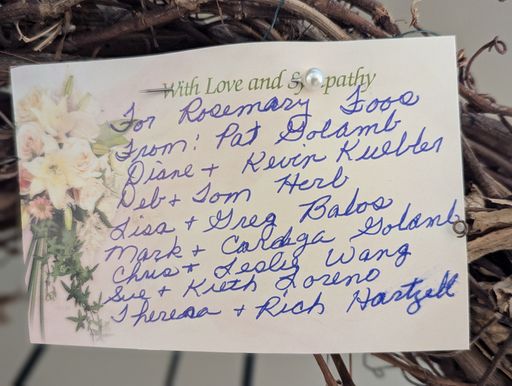 With Love and Sympathy
For Rosemary Foos
From: Pat Golamb
Diane + Kevin Kuebler
Deb + Tom Herb
Lisa + Greg Balos
Mark + Golamb
Chris + Lesly Wang
Sue + Kieth Loreno
Theresa + Rich Hartzell